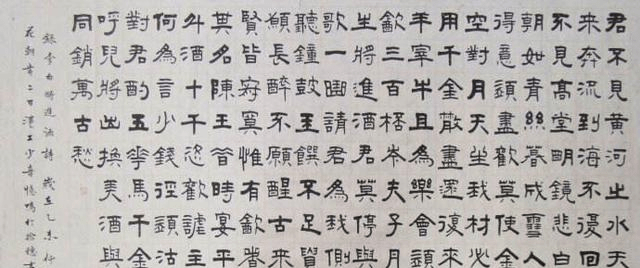 君不見黃河之水天
来奔流到海不復回
不見高堂明鏡悲白
朝如青絲暮成雪人
得意須盡歡莫使金
空對月天生我材必
用千金散盡還復来
羊宰牛且為樂會須
飲三百桮岑夫子丹
生將進酒君莫停與
歌一曲請君為我側
聽鐘鼓玉饌不足貴
願長醉不願醒古来
賢皆寂寞惟有飲者
其名陳王昔時宴平
斗酒十千恣歡謔主
何為言少錢徑須沽
對君酌五華馬千金
呼兒將出換美酒與
同銷萬古愁
錄李白將進酒詩 歲在乙未仲
花朝二日